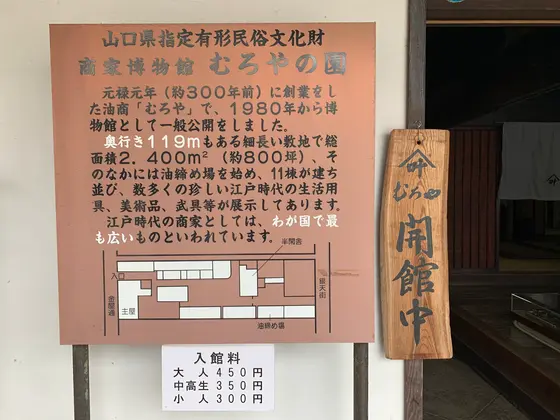 山口県指定有形民俗文化財
商家博物館 むろやの園
元禄元年（約300年前）に創業をし
た油商「むろや」で、1980年から博
物館として一般公開をしました。
奥行き119mもある細長い敷地で総
面積2.400m²（約800坪）、そ
のなかには油締め場を始め、11棟が建ち
並び、数多くの珍しい江戸時代の生活用
具、美術品、武具等が展示してあります。
江戸時代の商家としては、わが国で最
も広いものといわれています。
半閑舎
入口
金屋通
主屋
油締め場
銀天街
入館料
大人450円
中高生350円
小人300円
むろや
開館中